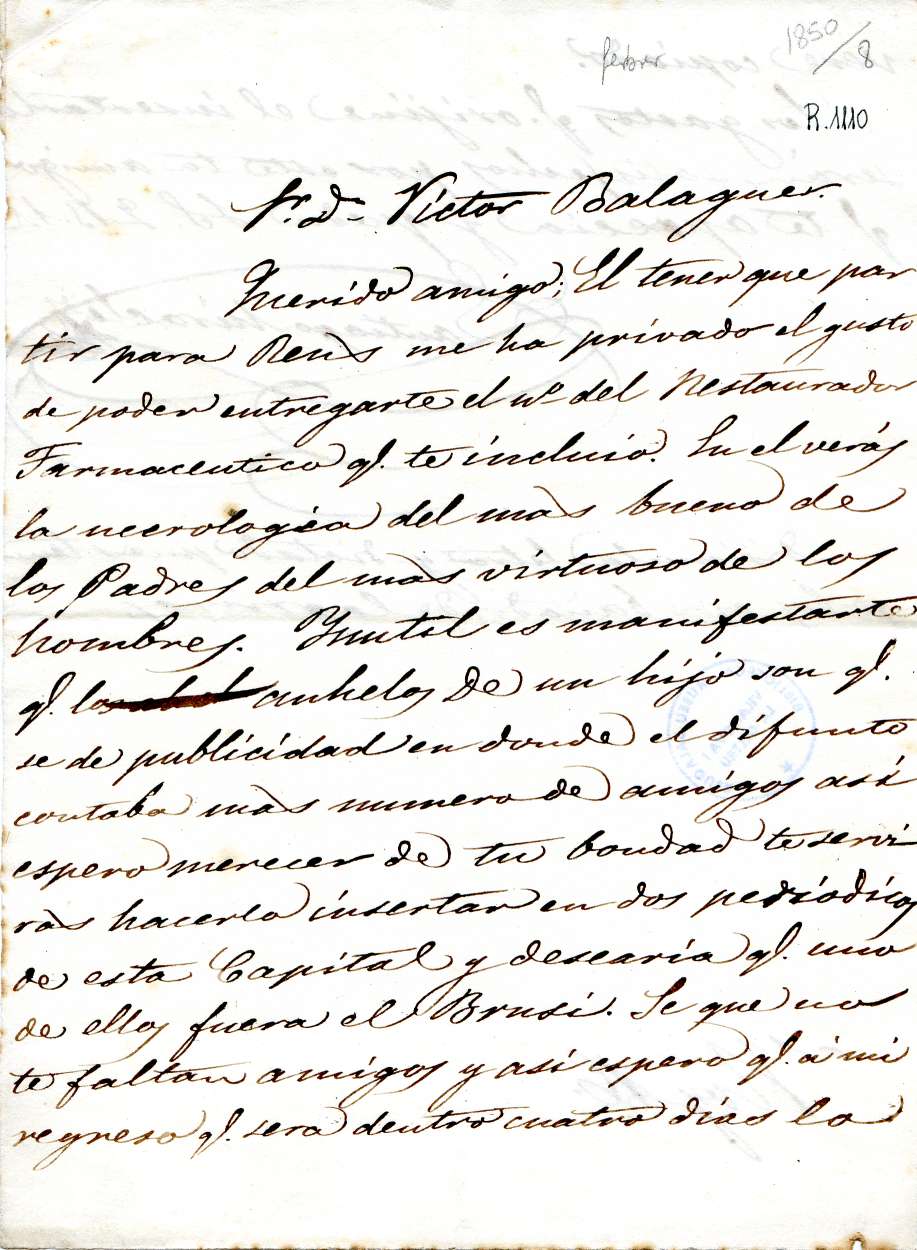 febrer 1850/8
R.1110
Sr. Dn. Víctor Balaguer.
Querido amigo; El tener que par
tir para Reus me ha privado el gusto
de poder entregarte el nº. del Restaurador
Farmaceutico q.e te incluio. En el verás
la necrologia del màs bueno de
los Padres del màs virtuoso de los
hombres. Ynutil es manifestarte
q.e los anhelos de un hijo son q.e
se de publicidad en donde el difunto
contaba màs numero de amigos así
espero merecer de tu bondad te servi
ràs hacerlo insertar en dos periodicos
de esta Capital y desearia q.e uno
de ellos fuera el Brusi. Se que no
te faltan amigos y así espero q.e á mi
regreso q.e sera dentro cuatro días lo